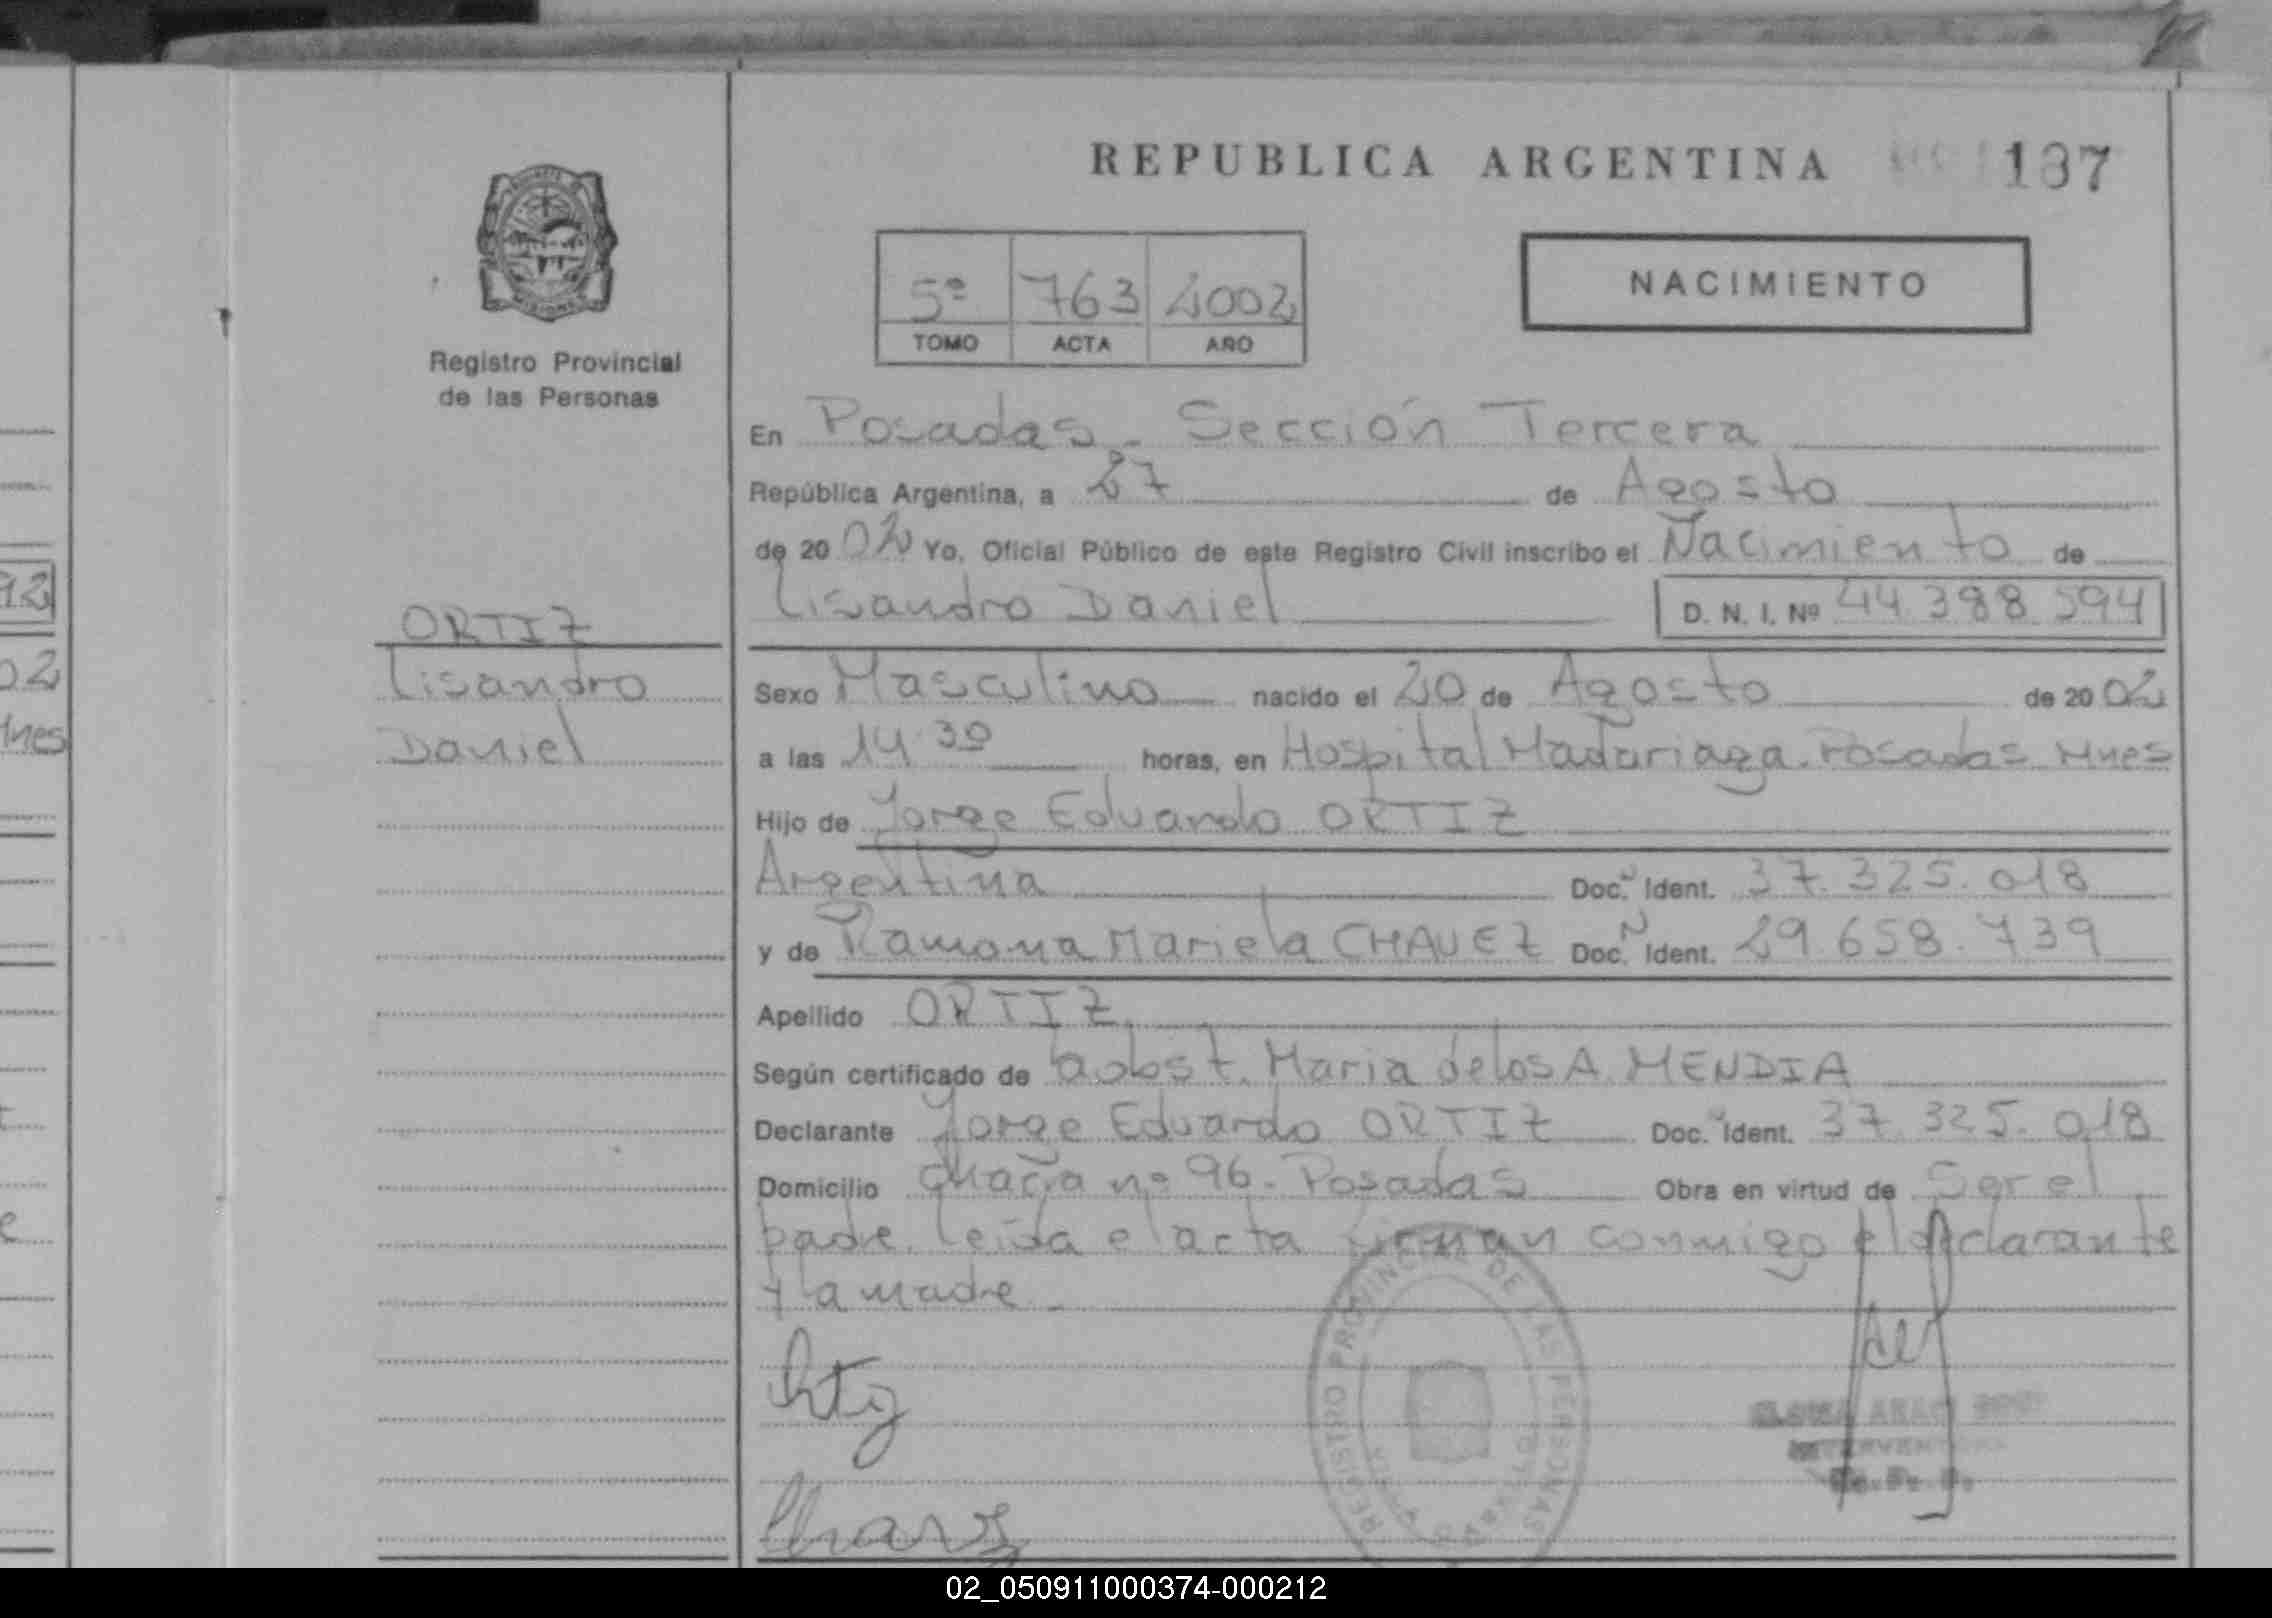 REPUBLICA ARGENTINA 137
Registro Provincial
de las Personas
5º 763 2002
TOMO ACTA AÑO
NACIMIENTO
En Posadas - Sección Tercera
República Argentina, a 27 de Agosto
de 20 02 Yo, Oficial Público de este Registro Civil inscribo el Nacimiento de
Lisandro Daniel D. N. I. Nº 44.398.594
ORTIZ
Lisandro
Daniel
Sexo Masculino nacido el 20 de Agosto de 20 02
a las 14.30 horas, en Hospital Madariaga. Posadas Mnes
Hijo de Jorge Eduardo ORTIZ
Argentina Doc. N Ident. 37.325.018
y de Ramona Mariela CHAVEZ Doc. N Ident. 29.658.739
Apellido ORTIZ
Según certificado de obst. Maria de los A. MENDIA
Declarante Jorge Eduardo ORTIZ Doc. N Ident. 37.325.018
Domicilio chacra nº 96. Posadas Obra en virtud de Ser el
padre. Leida el acta firman conmigo el declarante
y la madre.-
REGISTRO PROVINCIAL DE LAS PERSONAS
92
02
Mnes
02_050911000374-000212